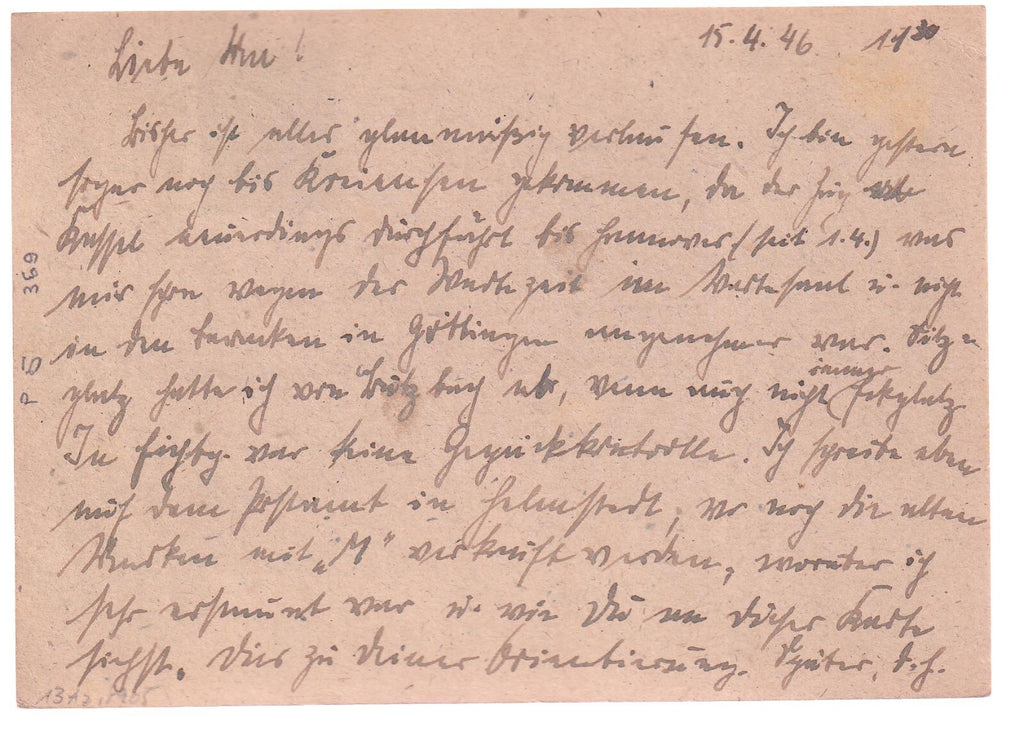 15.4.46. 11³⁰
Liebe !
Bisher ist alles planmäßig verlaufen. Ich bin gestern
sogar noch bis Kreiensen gekommen, da der Zug ab
Kassel neuerdings durchfährt bis Hannover (seit 1.4.) was
mir schon wegen der Wartezeit im Wartesaal u. nicht
in den Baracken in Göttingen angenehmer war. Sitz=
platz hatte ich von Butzbach ab, wenn auch nicht immer Eckplatz.
In Eichbg. war keine Gepäckkontrolle. Ich schreibe eben
auf dem Postamt in Helmstedt, wo noch die alten
Marken mit „M" verkauft werden, worüber ich
sehr erstaunt war u. wie Du an dieser Karte
siehst. Dies zu Deiner Orientierung. Später, d.h.
P 5 369